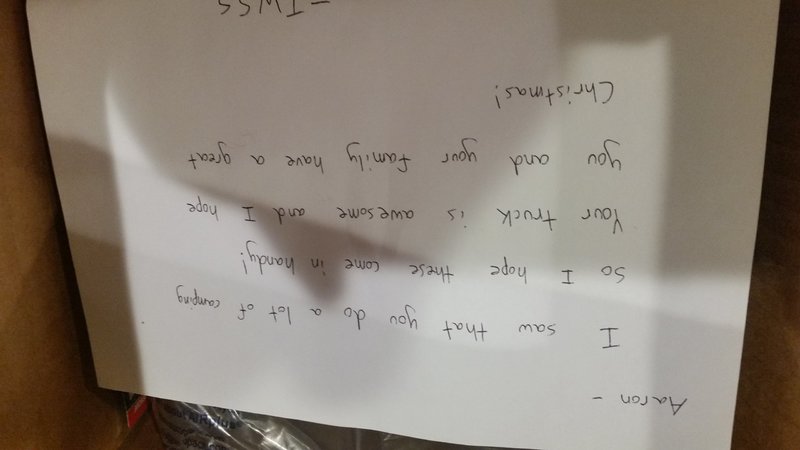 Aaron -
I saw that you do a lot of camping
So I hope these come in handy!
Your truck is awesome and I hope
you and your family have a great
Christmas!
- IWSS